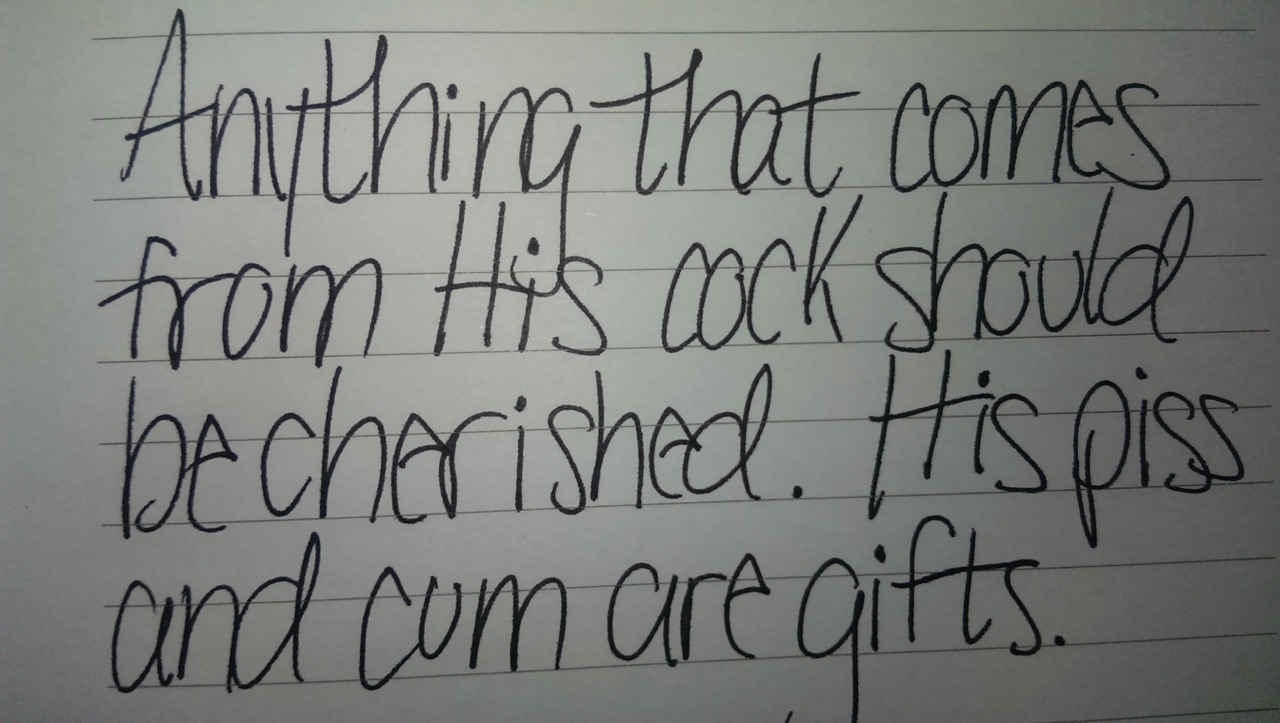 Anything that comes
from His cock should
be cherished. His piss
and cum are gifts.